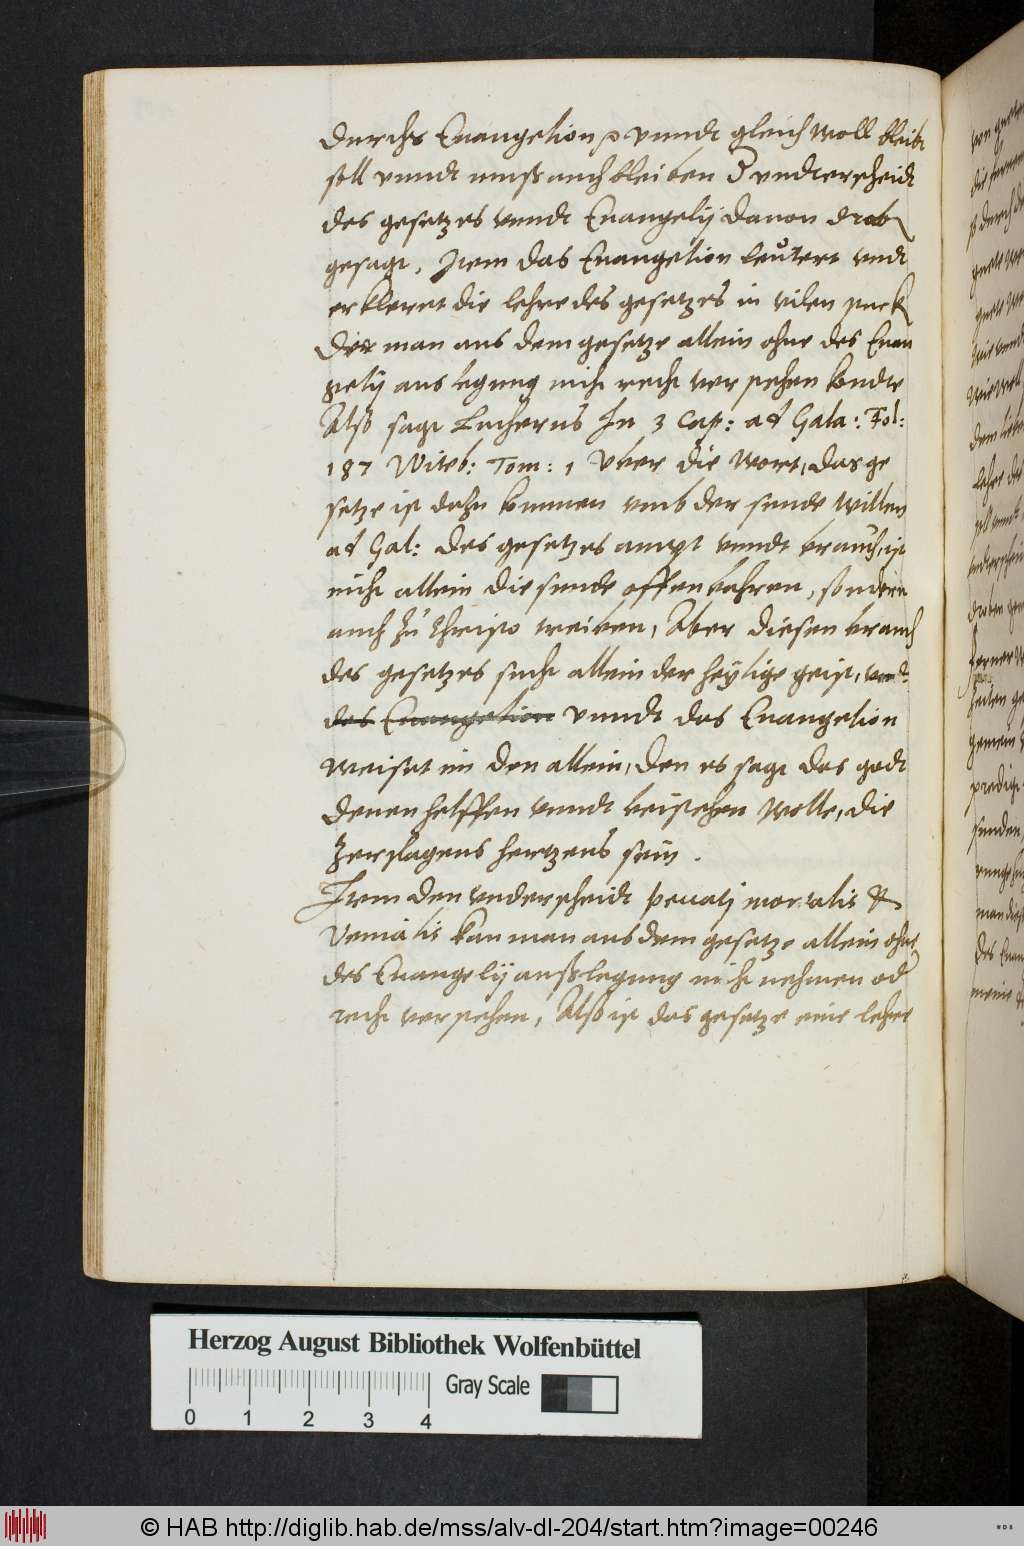 durchs Euangelion, vnndt gleich woll bleibt
soll vnndt muß auch bleiben d vndterscheidt
des gesetzes vnndt Euangelij dauon drob
gesagt, Item das Euangelion leutert vndt
erkleret die lehre des gesetzes in vilen
Die man aus dem gesetze allein ohne des Euan
gelij auslegung nicht recht verstehen kondte
Also sagt Lutherus In 3 Cap: ad Gala: Fol:
187 Witeb: Tom: 1 Vber die Wort, das ge
setze ist dazu kommen vmb der sunde willen
ad Gal: des gesetzes ampt vnndt brauch, ist
nicht allein die sunde offenbahren, sondern
auch zu Christo treiben, Aber diesen brauch
des gesetzes sucht allein der heylige geist, vnd
das Euangelion vnndt das Euangelion
weiset im den allein, den es sagt das godt
denen helffen vnndt beistehen wolle, die
zerschlagens hertzens sein.
Item den vnderscheidt peccatj mortalis &
Venialis kan man aus dem gesetze allein ohne
des Euangelij außlegung nicht nehmen od
recht verstehen, Also ist das gesetze eine lehre
Herzog August Bibliothek Wolfenbüttel
Gray Scale
0 1 2 3 4
© HAB http://diglib.hab.de/mss/alv-dl-204/start.htm?image=00246